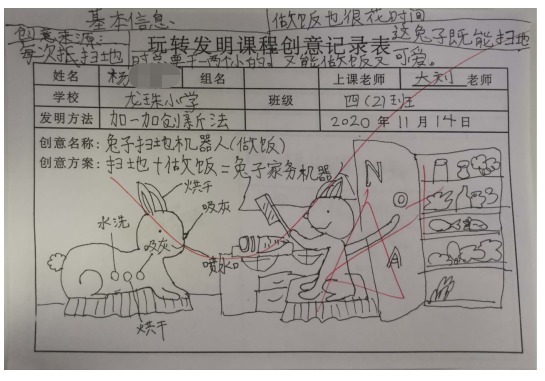 基本信息、
做饭也很花时间
创意来源:
这兔子既能扫地
玩转发明课程创意记录表
每次抵扫地 时总要干一两个小时。又能做饭又可爱。
姓名 杨 组名 上课老师 大刘 老师
学校 龙珠小学 班级 四(2)班
发明方法 加一加创新法 2020 年 11 月 14 日
创意名称: 兔子扫地机器人(做饭)
创意方案: 扫地+做饭=兔子家务机器
烘干
吸灰
水洗
吸灰
喷水口
烘干
N
O
A